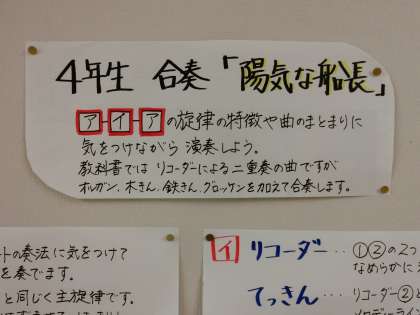 4年生 合奏「陽気な船長」
ア-イ-アの旋律の特徴や曲のまとまりに
気をつけながら 演奏しよう。
教科書では リコーダーによる二重奏の曲ですが
オルガン、木きん、鉄きん、グロッケンを加えて合奏します。
ートの奏法に気をつけ?
を奏でます。
と同じく主旋律です。
イ リコーダー… ①②の2つ
なめらかに
てっきん… リコーダー②と